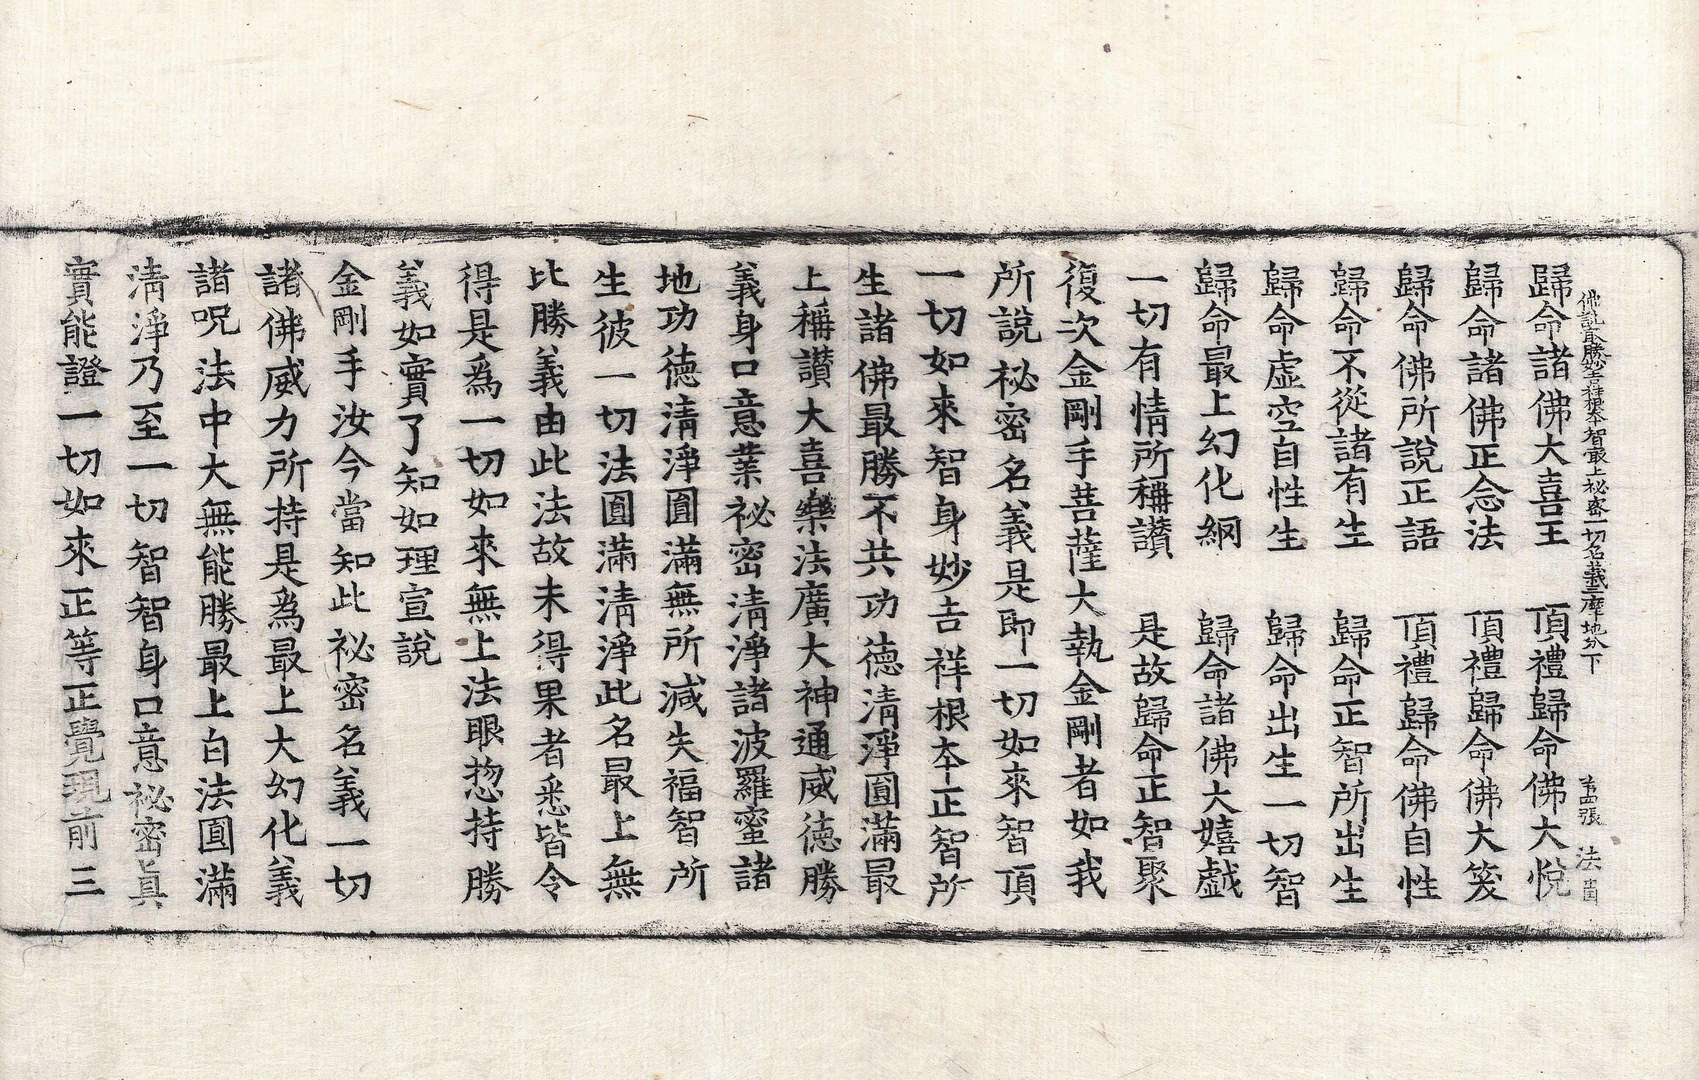 佛說最勝妙吉祥根本智最上祕密一切名義三摩地分下 第四張 法
歸命諸佛大喜王 頂禮歸命佛大悅
歸命諸佛正念法 頂禮歸命佛大笑
歸命佛所說正語 頂禮歸命佛自性
歸命不從諸有生 歸命正智所出生
歸命虛空自性生 歸命出生一切智
歸命最上幻化網 歸命諸佛大嬉戲
一切有情所稱讚 是故歸命正智聚
復次金剛手菩薩大執金剛者如我
所說祕密名義是即一切如來智頂
一切如來智身妙吉祥根本正智所
生諸佛最勝不共功德清淨圓滿最
上稱讚大喜樂法廣大神通威德勝
義身口意業祕密清淨諸波羅蜜諸
地功德清淨圓滿無所減失福智所
生彼一切法圓滿清淨此名最上無
比勝義由此法故未得果者悉皆令
得是為一切如來無上法眼惣持勝
義如實了知如理宣說
金剛手汝今當知此祕密名義一切
諸佛威力所持是為最上大幻化義
諸呪法中大無能勝最上白法圓滿
清淨乃至一切智智身口意祕密真
實能證一切如來正等正覺現前三